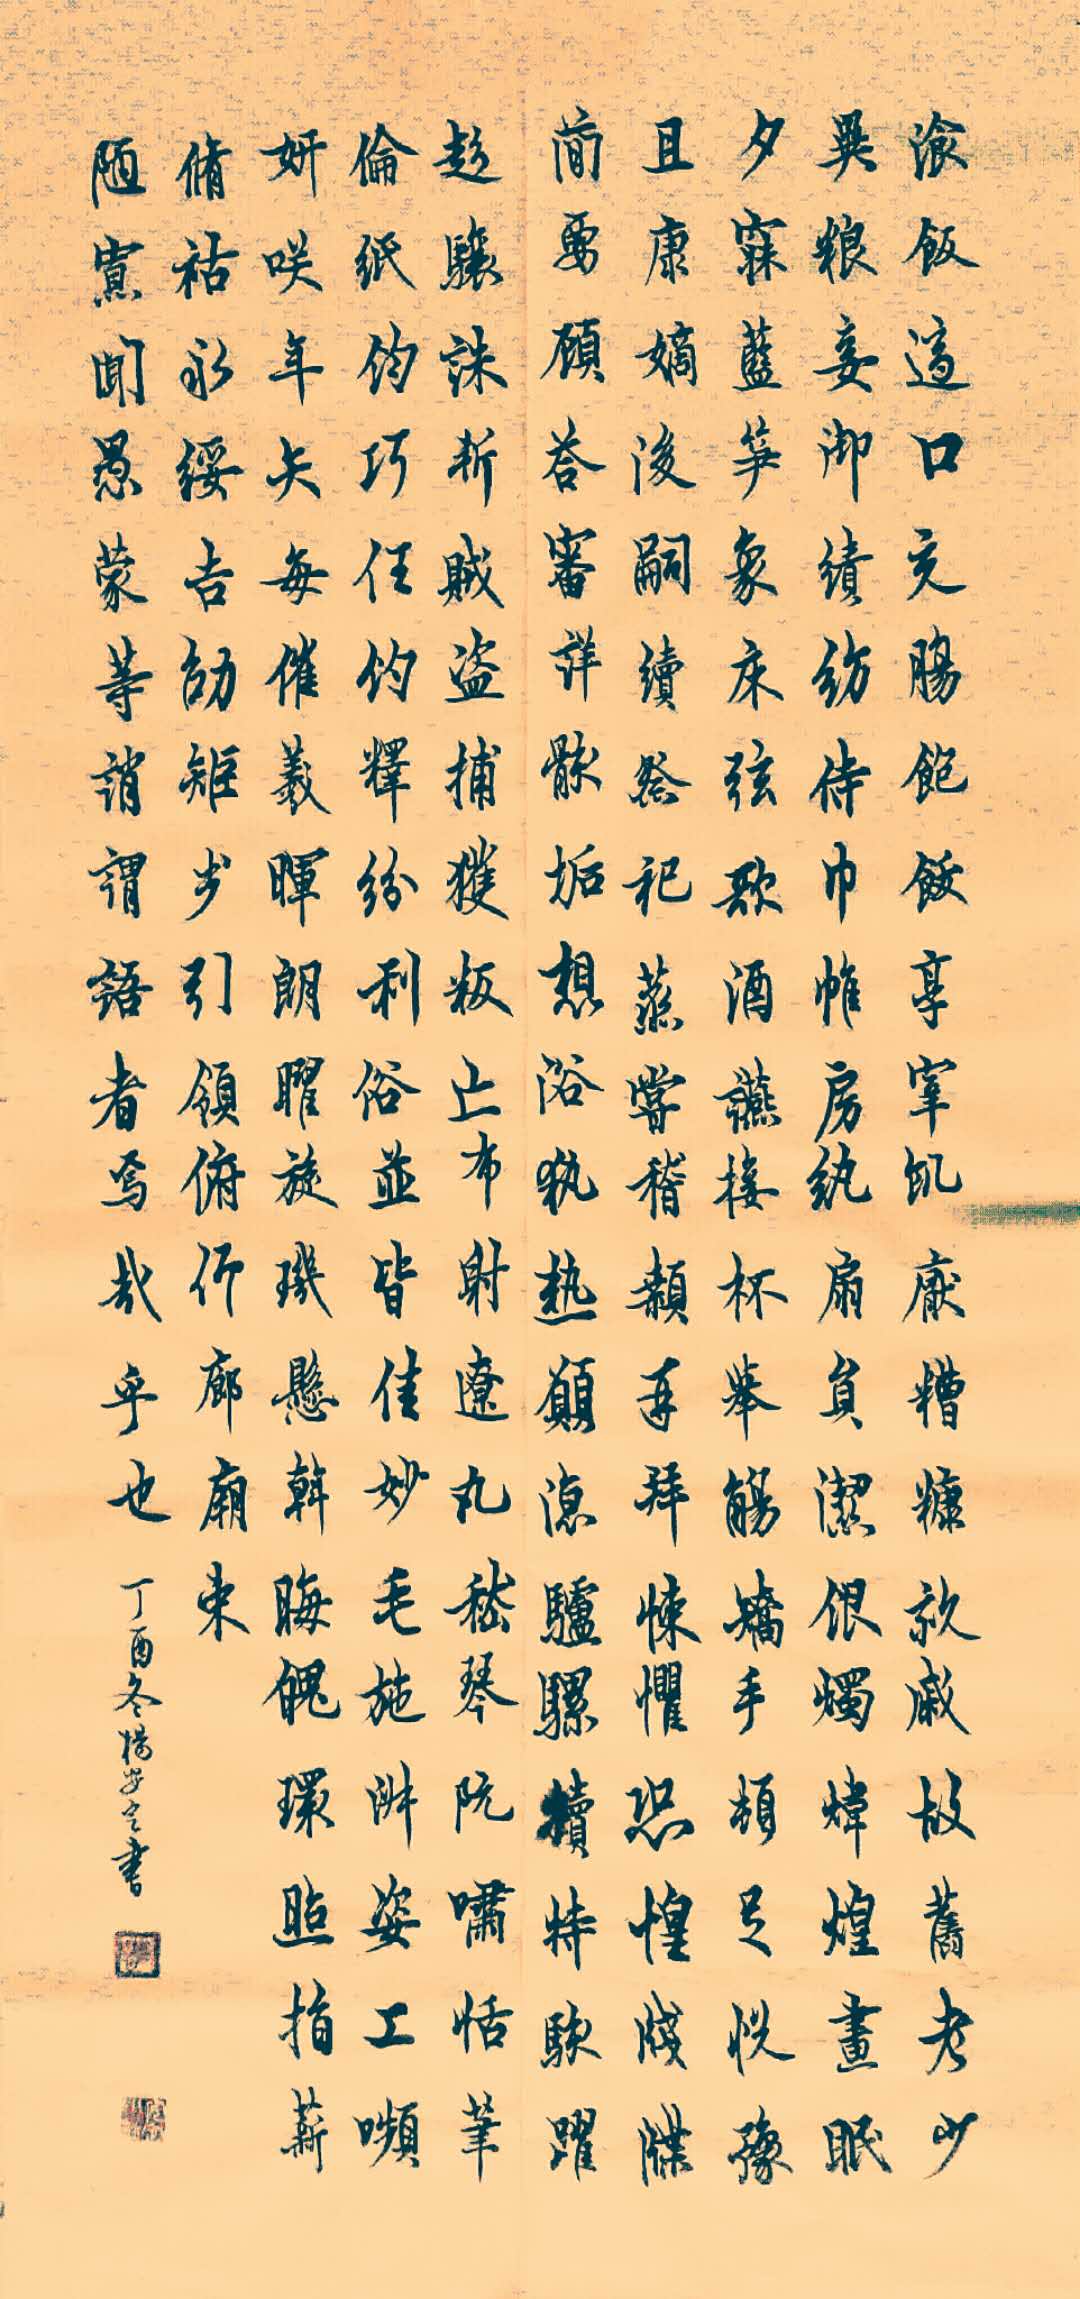 飡飯適口充腸飽飫享宰飢厭糟糠親戚故舊老少
異粮妾御績紡侍巾帷房紈扇員潔銀燭煒煌晝眠
夕寐藍笋象床弦歌酒讌接杯舉觴矯手頓足悅豫
且康嫡後嗣續祭祀蒸嘗稽顙再拜悚懼恐惶牋牒
簡要顧荅審詳骸垢想浴執熱願涼驢騾犢特駭躍
超驤誅斬賊盜捕獲叛亡布射遼丸嵇琴阮嘯恬筆
倫紙鈞巧任釣釋紛利俗並皆佳妙毛施淑姿工嚬
妍咲年矢每催羲暉朗曜旋璣懸斡晦魄環照指薪
脩祜永綏吉劭矩步引領俯仰廊廟束
陋寡聞愚蒙等誚謂語者焉哉乎也
丁酉冬楊書